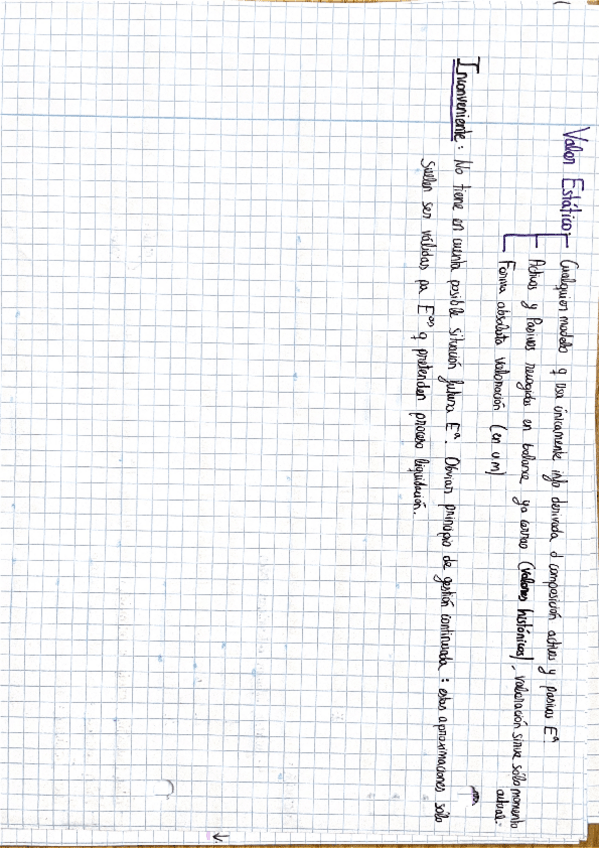 Valor Estático
Cualquier modelo q usa únicamente info derivada d composición activos y pasivos Eª.
Activos y Pasivos recogidos en balance ya cerrao (valores históricos), valoración sirve sólo momento
actual.
Forma absoluta valoración (en u.m)
Inconveniente: No tiene en cuenta posible situación futura Eª. Obvian principio de gestión continuada: estas aproximaciones sólo
suelen ser válidas pa Eᵃˢ q pretenden proceso liquidación.